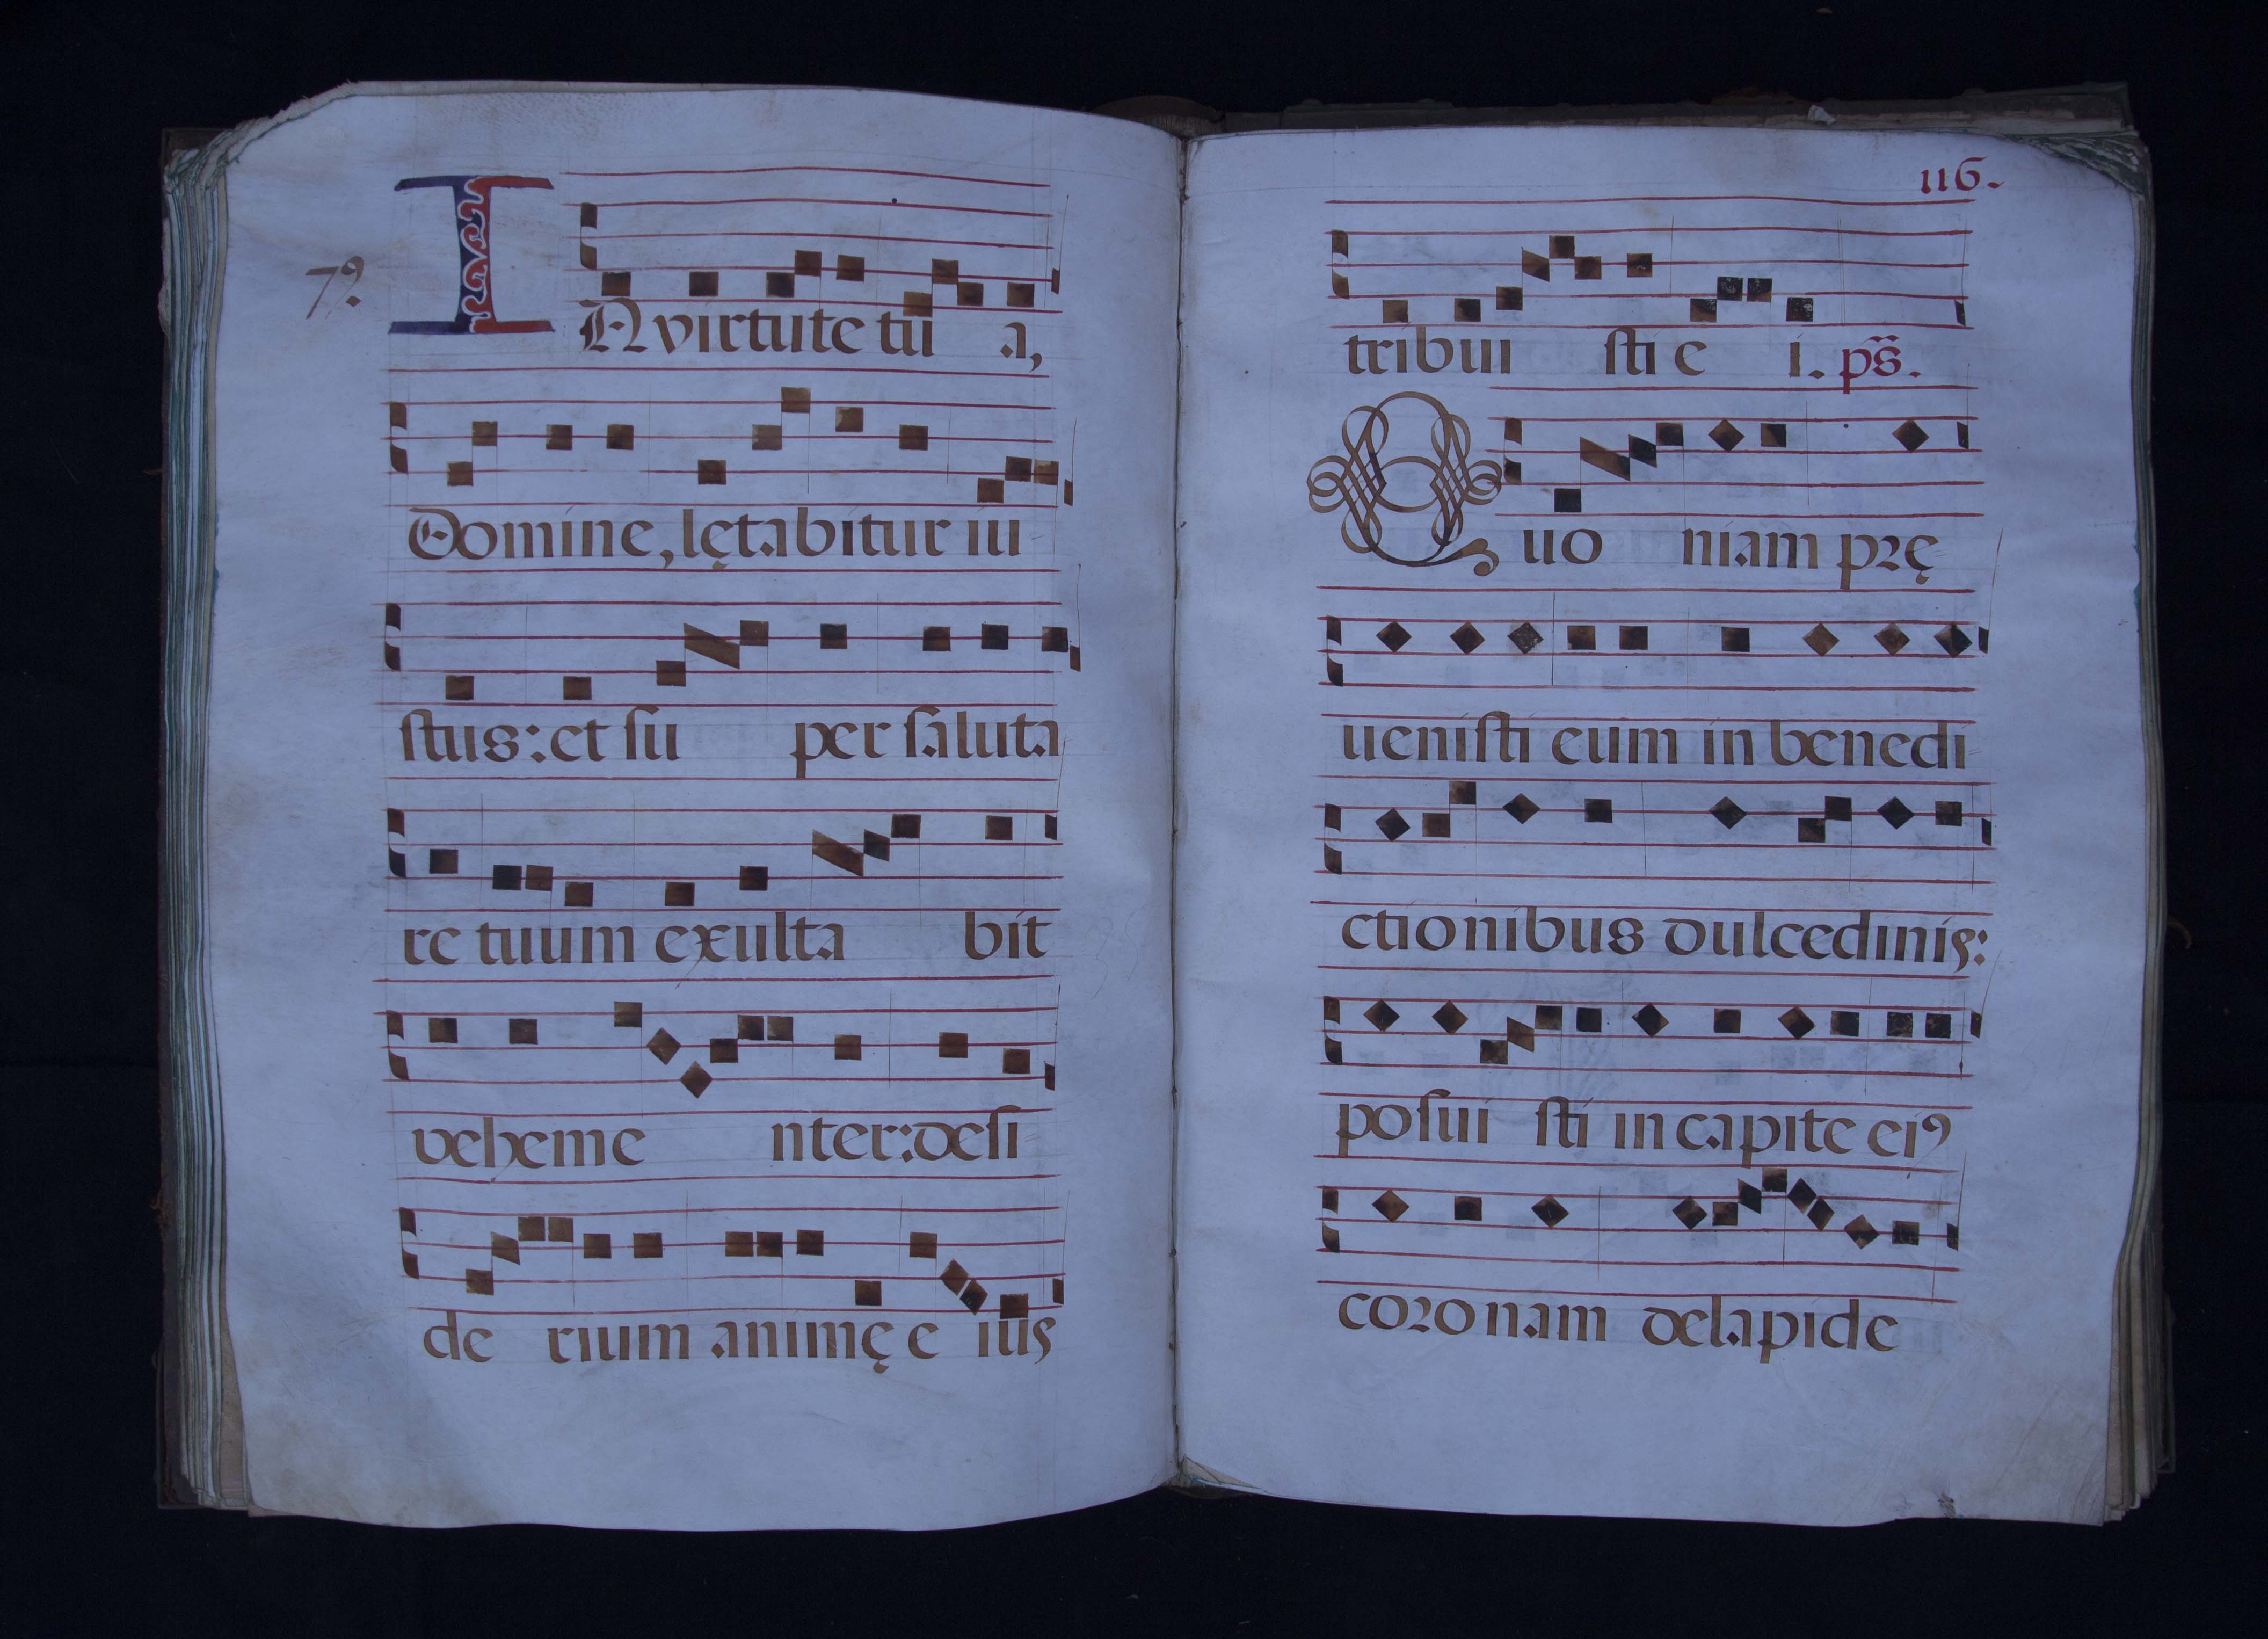 7º.
IN virtute tu a,
Domine, lętabitur iu
stus: et su per saluta
re tuum exulta bit
veheme nter: desi
de rium animę e ius
116.
tribui sti e i. ps.
Quo niam prę
uenisti eum in benedi
ctionibus dulcedinis:
posui sti in capite ei9
coronam delapide